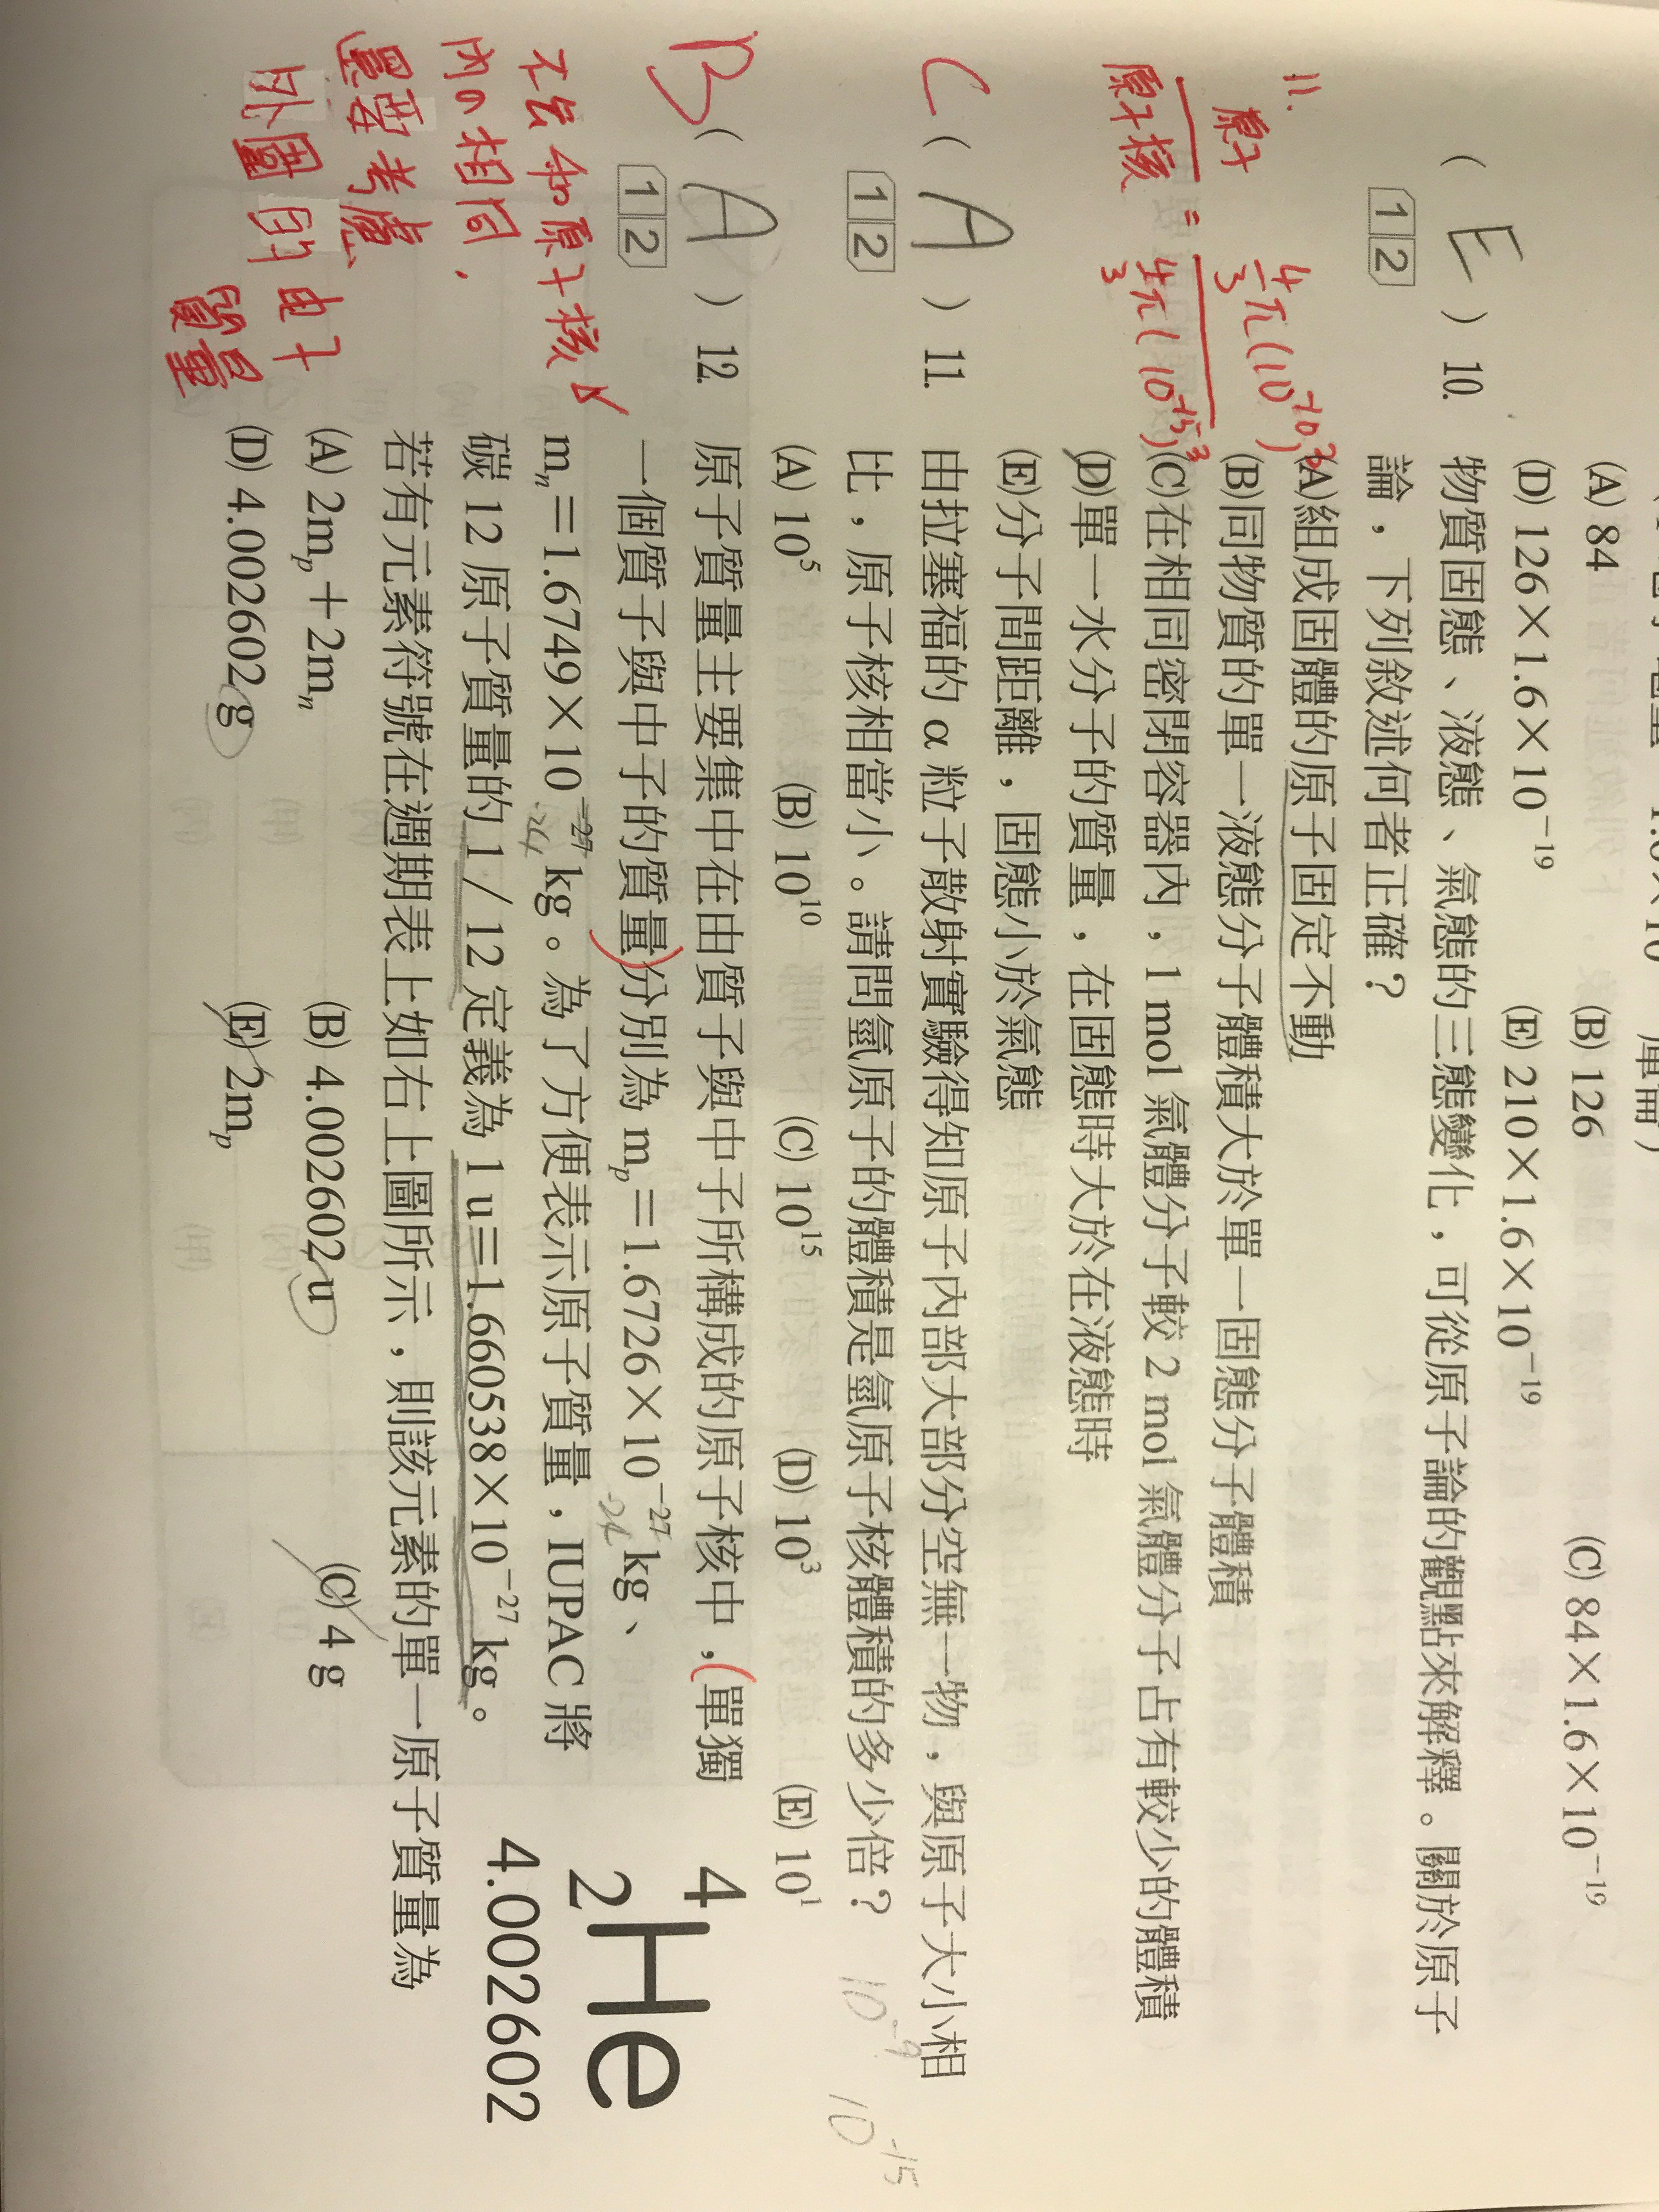 (A) 84 (B) 126 (C) 84×1.6×10⁻¹⁹
(D) 126×1.6×10⁻¹⁹ (E) 210×1.6×10⁻¹⁹
( E ) 10. 物質固態、液態、氣態的三態變化，可從原子論的觀點來解釋。關於原子
1 2 論，下列敘述何者正確？
(A)組成固體的原子固定不動
(B)同物質的單一液態分子體積大於單一固態分子體積
(C)在相同密閉容器內，1 mol 氣體分子較 2 mol 氣體分子占有較少的體積
(D)單一水分子的質量，在固態時大於在液態時
(E)分子間距離，固態小於氣態
11. 原子/原子核 = 4/3 π(10⁻¹⁰)³ / 4/3 π(10⁻¹⁵)³
C ( A ) 11. 由拉塞福的 α 粒子散射實驗得知原子內部大部分空無一物，與原子大小相
1 2 比，原子核相當小。請問氫原子的體積是氫原子核體積的多少倍？
10⁻⁹ 10⁻¹⁵
(A) 10⁵ (B) 10¹⁰ (C) 10¹⁵ (D) 10³ (E) 10¹
B ( A ) 12. 原子質量主要集中在由質子與中子所構成的原子核中，單獨
1 2 一個質子與中子的質量分別為 mₚ＝1.6726×10⁻²⁷ kg、
-24
mₙ＝1.6749×10⁻²⁷ kg。為了方便表示原子質量，IUPAC 將
-24
碳 12 原子質量的 1／12 定義為 1 u＝1.660538×10⁻²⁷ kg。
若有元素符號在週期表上如右上圖所示，則該元素的單一原子質量為
(A) 2mₚ＋2mₙ (B) 4.002602 u (C) 4 g
(D) 4.002602 g (E) 2mₚ
4
2 He
4.002602
和原子核
內の相同，
還要考慮
外圍的電子
質量